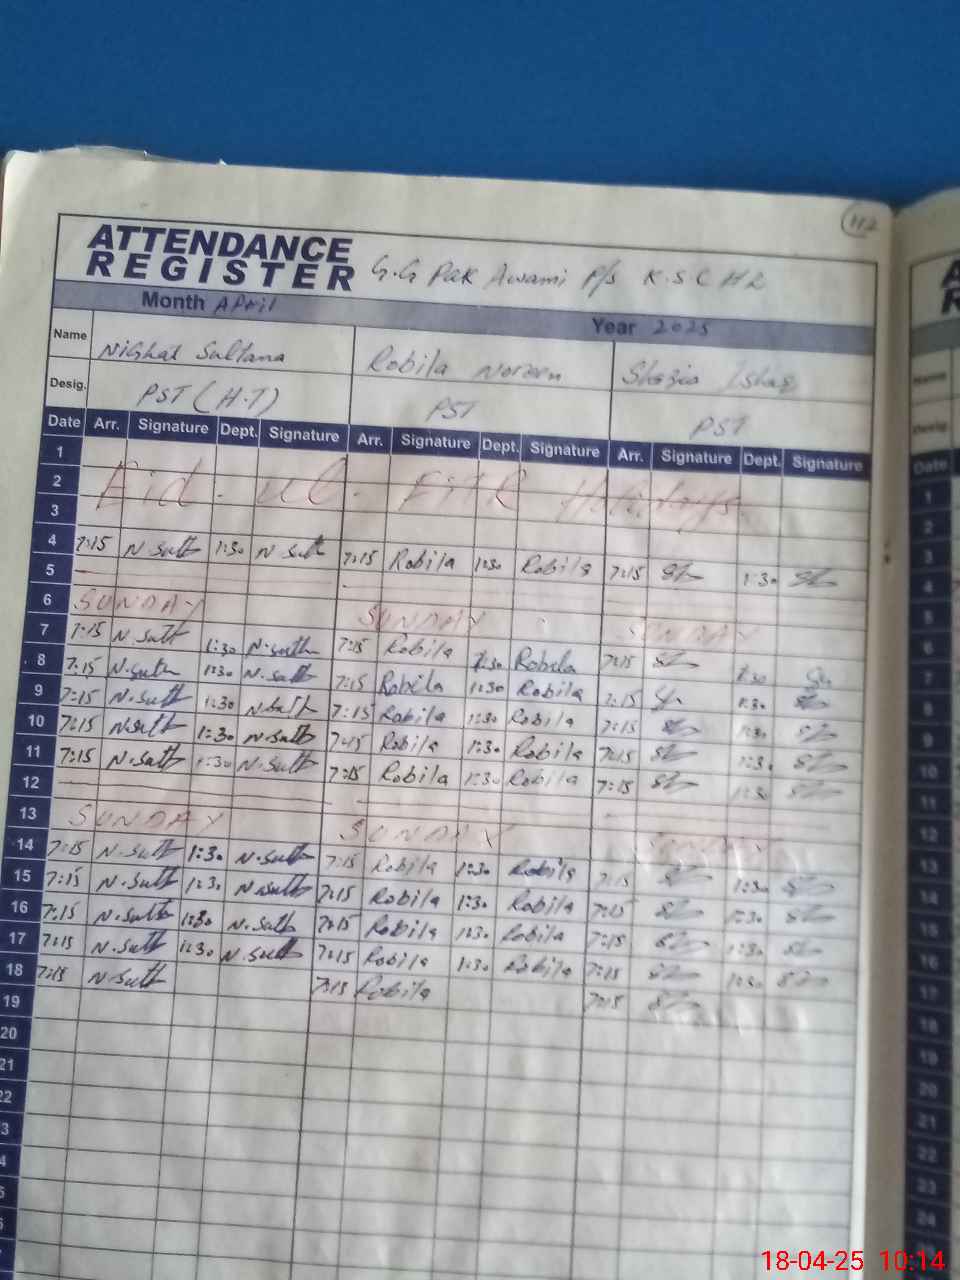 112
ATTENDANCE
REGISTER G.G Pak Awami P/S K.S C H 2
Month April Year 2025
Name Nighat Sultana Robila Noreen Shazia Ishaq
Desig. PST (H.T) PST PST
Date Arr. Signature Dept. Signature Arr. Signature Dept. Signature Arr. Signature Dept. Signature
1
2 Eid - ul - Fitr Holidays
3
4 7:15 N.Sult 1:30 N.Sult 7:15 Robila 1:30 Robila 7:15 1:30
5
6 SUNDAY SUNDAY SUNDAY
7 7:15 N.Sult 1:30 N.Sult 7:15 Robila 1:30 Robila 7:15 1:30
8 7:15 N.Sult 1:30 N.Sult 7:15 Robila 1:30 Robila 7:15 1:30
9 7:15 N.Sult 1:30 N.Sult 7:15 Robila 1:30 Robila 7:15 1:30
10 7:15 N.Sult 1:30 N.Sult 7:15 Robila 1:30 Robila 7:15 1:30
11 7:15 N.Sult 1:30 N.Sult 7:15 Robila 1:30 Robila 7:15 1:30
12
13 SUNDAY SUNDAY
14 7:15 N.Sult 1:30 N.Sult 7:15 Robila 1:30 Robila 7:15 1:30
15 7:15 N.Sult 1:30 N.Sult 7:15 Robila 1:30 Robila 7:15 1:30
16 7:15 N.Sult 1:30 N.Sult 7:15 Robila 1:30 Robila 7:15 1:30
17 7:15 N.Sult 1:30 N.Sult 7:15 Robila 1:30 Robila 7:15 1:30
18 7:15 N.Sult 7:15 Robila 7:15
19
20
21
22
3
4
5
6
Date
1
2
3
4
5
6
7
8
9
10
11
12
13
14
15
16
17
18
19
20
21
22
23
24
18-04-25 10:14